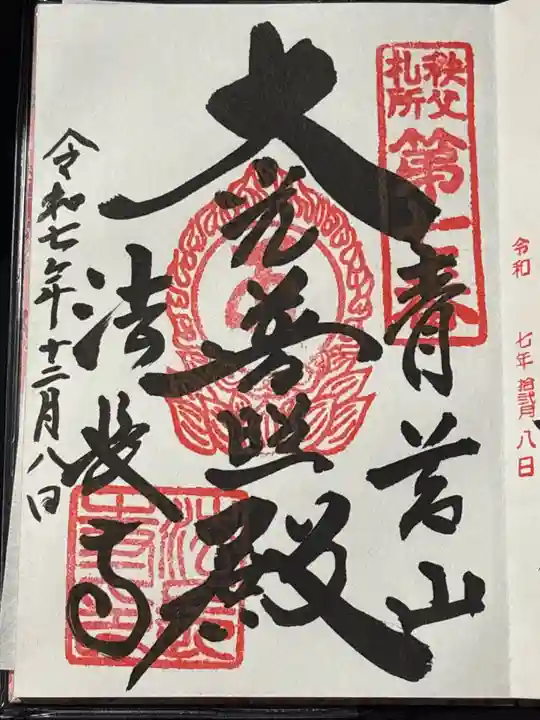 令和 七年 拾貳月 八日
秩父
札所
第七番
青苔山
大光普照殿
法長寺
令和七年十二月八日